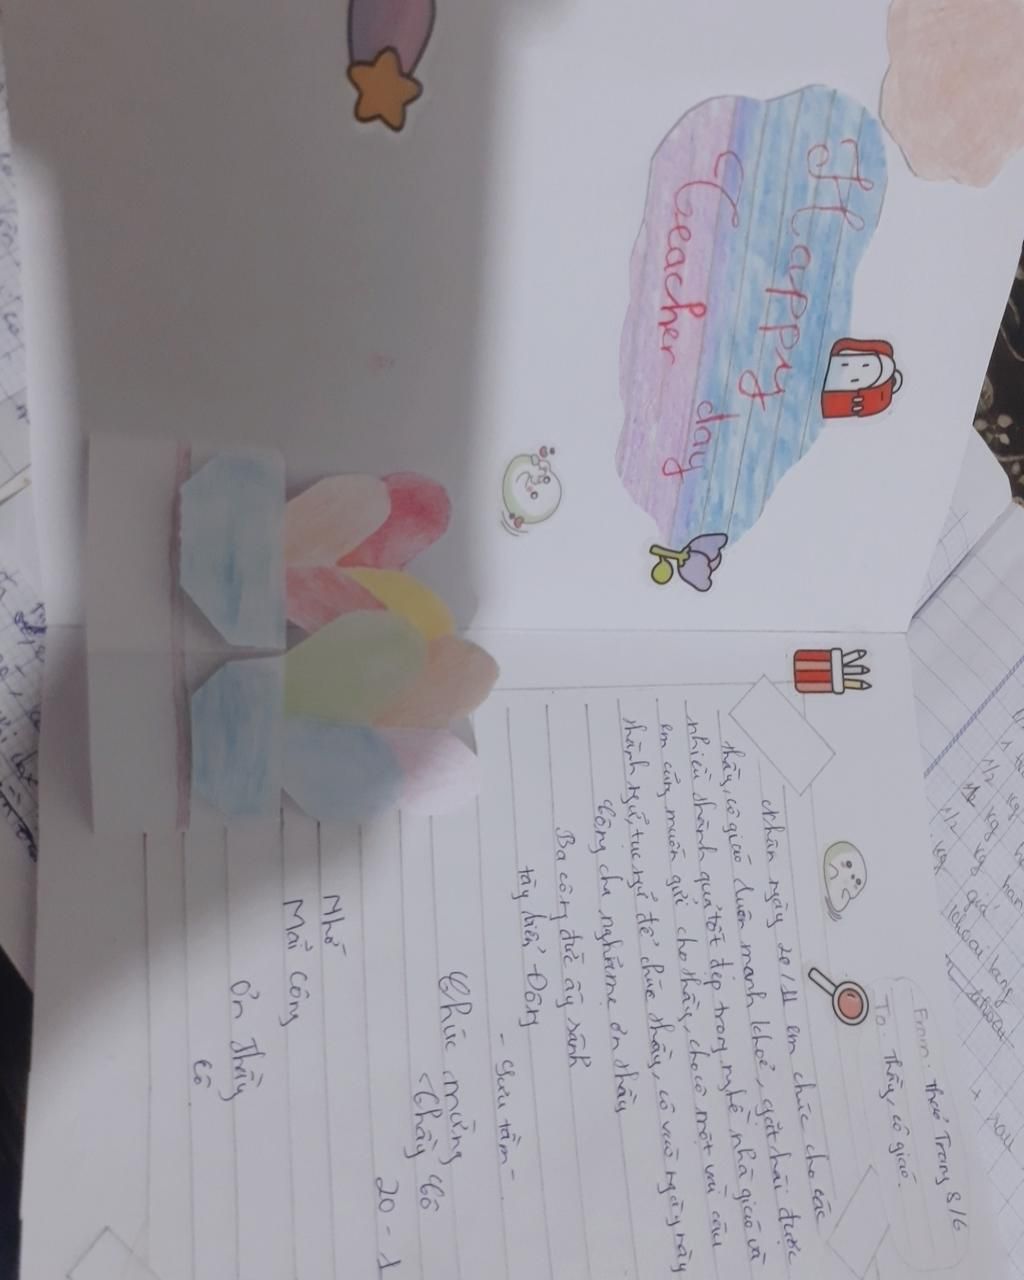 Happy
Teacher day
From: Thuỳ Trang 8/6
To: Thầy, cô giáo.
Nhân ngày 20/11 em chúc cho các
thầy, cô giáo luôn mạnh khoẻ, gặt hái được
nhiều thành quả tốt đẹp trong nghề nhà giáo và
em cũng muốn gửi cho thầy, cho cô một vài câu
thành ngữ, tục ngữ để chúc thầy, cô vào ngày này
Công cha nghĩa mẹ ơn thầy
Ba công đức ấy sánh
tày biển Đông
- Sưu tầm -
Chúc mừng
Thầy Cô
20 - 1
Nhớ
Mãi công
Ơn Thầy
Cô
1/2 kg
1/2 kg
1/2 kg
khoai lang